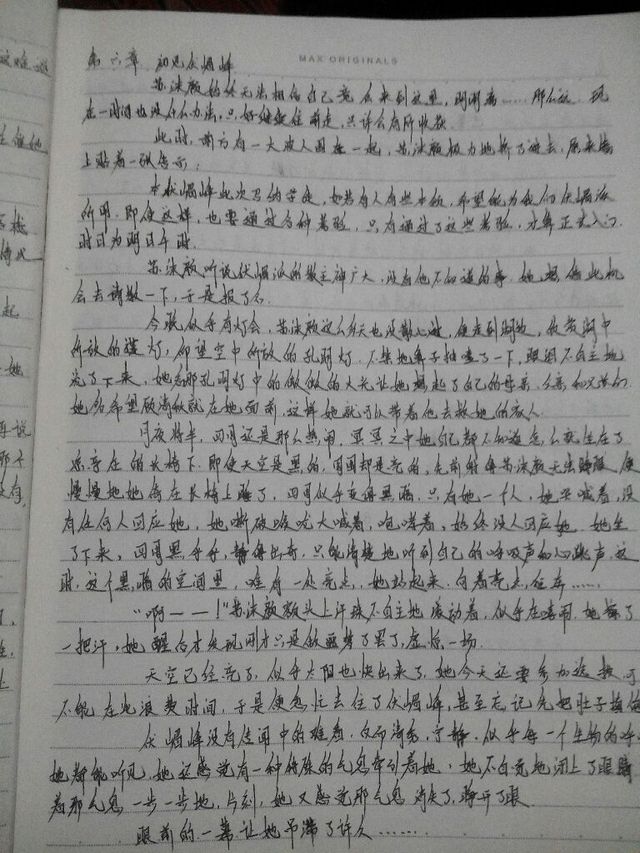 MAX ORIGINALS
第六章 初见伏崛峰
苏浅颜始终无法相信自己竟会来到这里,明明离……那么远 现
在一时间也没什么办法,只好继续往前走,只许会有所收获.
此时,前方有一大波人围在一起,苏浅颜极力地挤了进去,原来墙
上贴着一张告示:
本伏崛峰此次召纳学徒,如若有人有些本领,希望能为我们伏崛派
所用.即使这样,也要通过各种考验,只有通过了这些考验,才算正式入门.
时日为明日午时.
苏浅颜听说伏崛派的教主神广大,没有他不知道的事.她想借此机
会去请教一下,于是报了名.
今晚似乎有灯会,苏浅颜这么多天也没散心过,便走到湖边,欣赏湖中
所放的莲灯,仰望空中所放的孔明灯.不禁地鼻子抽噎了一下,眼泪不自主地
流了下来,她看那孔明灯中的微微的火光让她想起了自己的母亲、父亲和兄弟们.
她多希望殷漓钦就在她面前,这样她就可以带着他去救她的家人.
月夜将半,四周还是那么热闹,冥冥之中她自己都不知道怎么就坐在了
凉亭在的长椅下.即使天空是黑的,周围却是亮的,光射得苏浅颜无法睁眼,便
慢慢地她倚在长椅上睡了,四周似乎变得黑暗,只有她一个人,她哭喊着,没
有任何人回应她,她嘶破喉咙大喊着,咆哮着,始终没人回应她.她坐
了下来,四周黑乎乎,静得出奇,只能清楚地听到自己的呼吸声和心跳声.这
时,这个黑暗的空间里,唯有一处亮点,她站起来,向着亮点,往奔……
“啊——!”苏浅颜额头上汗珠不自主地滚动着,似乎在嘻闹,她擦了
一把汗,她醒后才发现刚才只是做噩梦了罢了,虚惊一场.
天空已经亮了,似乎太阳也快出来了,她今天还要参加选拔,可
不能在此浪费时间,于是便急忙去往了伏崛峰,甚至忘记先把肚子填饱
伏崛峰没有传闻中的难看,反而清秀,宁静,似乎每一个生物的呼
她都能听见,她还感觉有一种特殊的气息牵引着她,她不自觉地闭上了眼睛
着那气息一步一步地,片刻,她又感觉那气息消失了,睁开了眼.
眼前的一幕让她吊滞了许久……